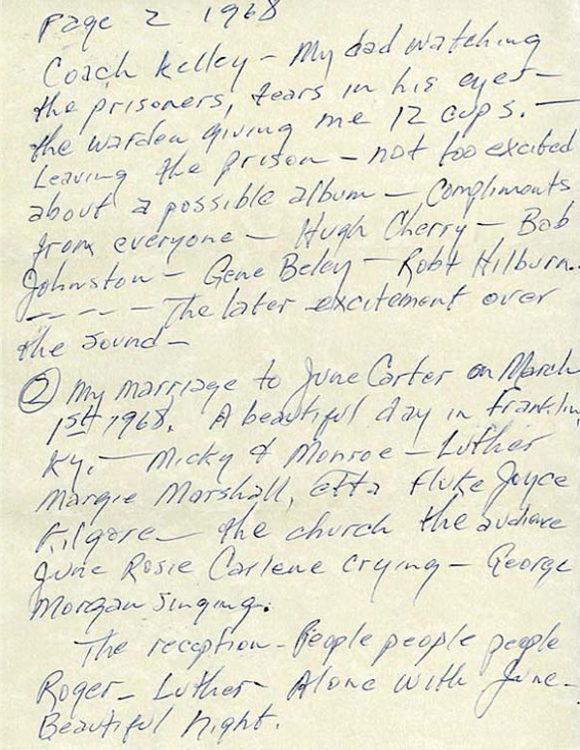 Page 2 1968
Coach Kelley - My dad watching
the prisoners, tears in his eyes -
the warden giving me 12 cups. -
Leaving the prison - not too excited
about a possible album - Compliments
from everyone - Hugh Cherry - Bob
Johnston - Gene Beley - Robt Hilburn..
- - - - The later excitement over
the sound -
② My marriage to June Carter on March
1st 1968. A beautiful day in Franklin,
Ky. - Micky & Monroe - Luther
Margie Marshall, Etta Fluke Joyce
Kilgore - the church the audience
June Rosie Carlene crying - George
Morgan singing.
The reception - People people people
Roger - Luther Alone with June -
Beautiful night.